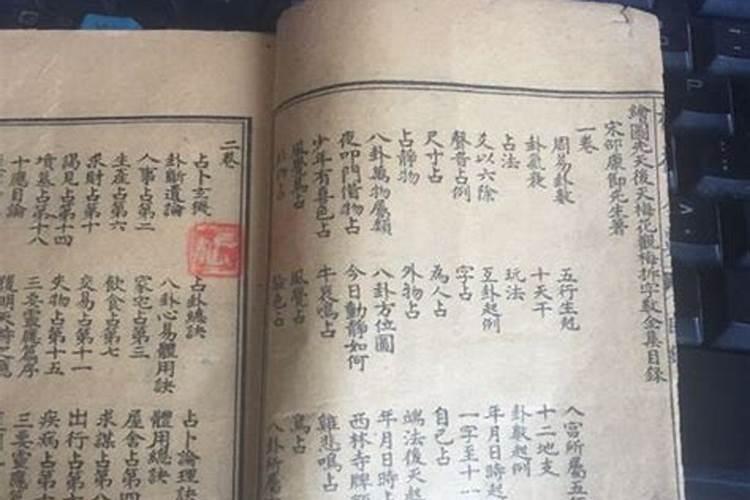 繪圖先天後天梅花觀梅拆字數全集目錄
宋邵康節先生著
一卷
周易卦數 五行生剋 八宮所屬五
卦氣衰 十天干 十二地支
占法 玩法 卦數起例
爻以六除 互卦起例 年月日時起
聲音占例 字占 一字至十一
尺寸占 為人占 自己占
占靜物 外物占 端法後天起
八卦萬物屬類 八卦方位圖 年月日時占
夜叩門借物占 今日動靜如何 西林寺牌額
少年有喜色占 牛哀鳴占 雞悲鳴占
風覺鳥占 風覺占 鳥占
色占 八卦所屬
二卷
占卜玄機 占卦總訣 占卜論理訣
卦斷遺論 八卦心易體用訣 體用總訣
人事占第二 家宅占第三 屋舍占第四
生產占第六 飲食占第七 求謀占第
求財占第十 交易占第十一 出行占第十
謁見占第十四 失物占第十五 疾病占第十
墳墓占第十八 三要靈應篇序 三要靈應篇
十應目論